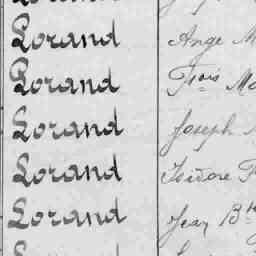 Lorand Ange M
Lorand Fois Ma
Lorand Joseph
Lorand Isidore F
Lorand Jean Bte